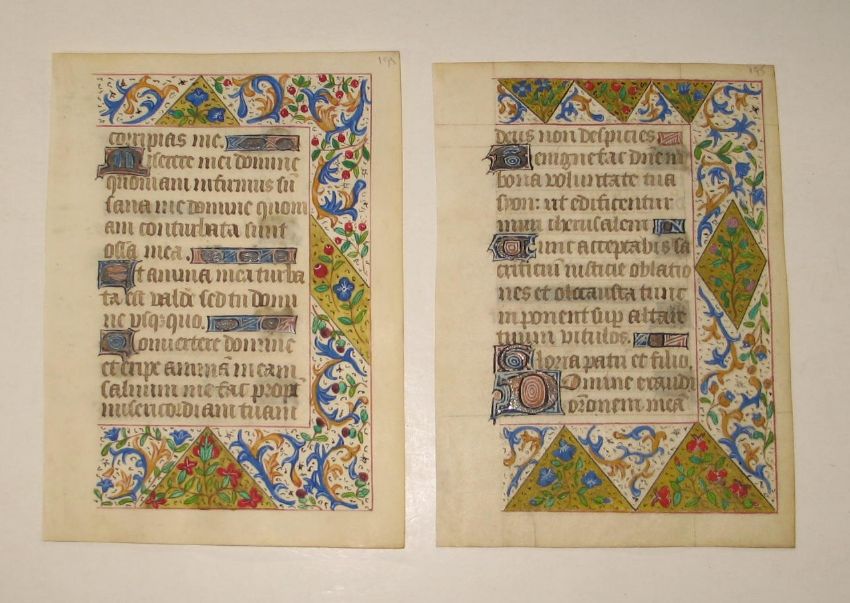 corripias me.
Miserere mei domine
quoniam infirmus sū
sana me domine quoni
am conturbata sunt
ossa mea.
Et anima mea turba
ta est valde sed tu domi
ne usq; quo.
Convertere domine
et eripe animā meam
salvum me fac propt̄
misericordiam tuam
deus non despicies.
Benigne fac dn̄e in
bona voluntate tua
syon: ut edificentur
muri iherusalem
Tunc acceptabis sa
crificiū iusticie oblatio
nes et olocausta tunc
imponent sup altare
tuum vitulos.
Gloria patri et filio
Domine exaudi
orōnem meā